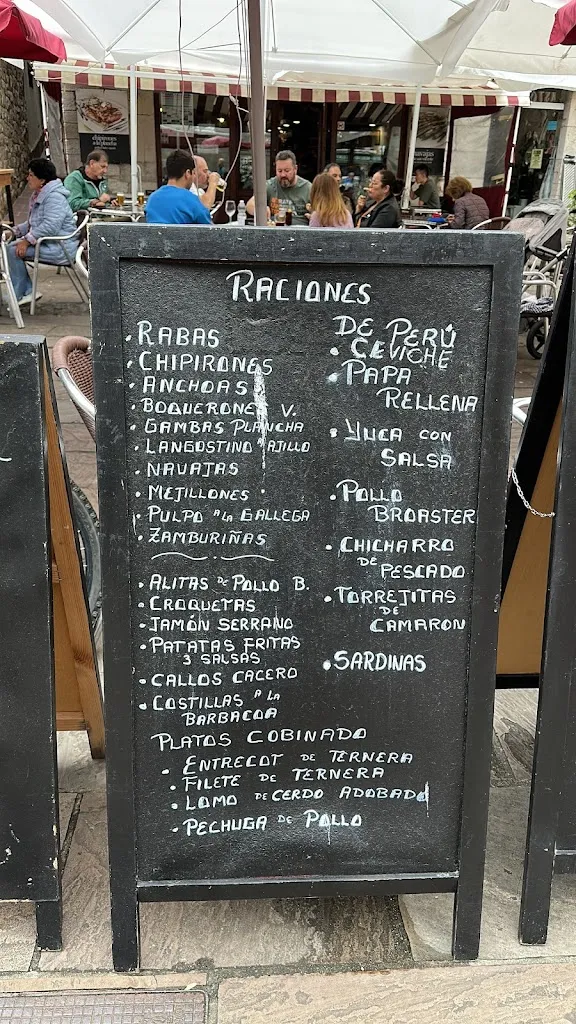 RACIONES
• RABAS
• CHIPIRONES
• ANCHOAS
• BOQUERONES V.
• GAMBAS PLANCHA
• LANGOSTINO AJILLO
• NAVAJAS
• MEJILLONES •
• PULPO A LA GALLEGA
• ZAMBURIÑAS
• ALITAS DE POLLO B.
• CROQUETAS
• JAMÓN SERRANO
• PATATAS FRITAS
3 SALSAS
• CALLOS CACERO
• COSTILLAS A LA
BARBACOA
PLATOS COBINADO
• ENTRECOT DE TERNERA
• FILETE DE TERNERA
• LOMO DE CERDO ADOBADO
• PECHUGA DE POLLO
DE PERÚ
• CEVICHE
• PAPA
RELLENA
• YUCA CON
SALSA
• POLLO
BROASTER
• CHICHARRO
DE
PESCADO
• TORREJITAS
DE
CAMARON
• SARDINAS